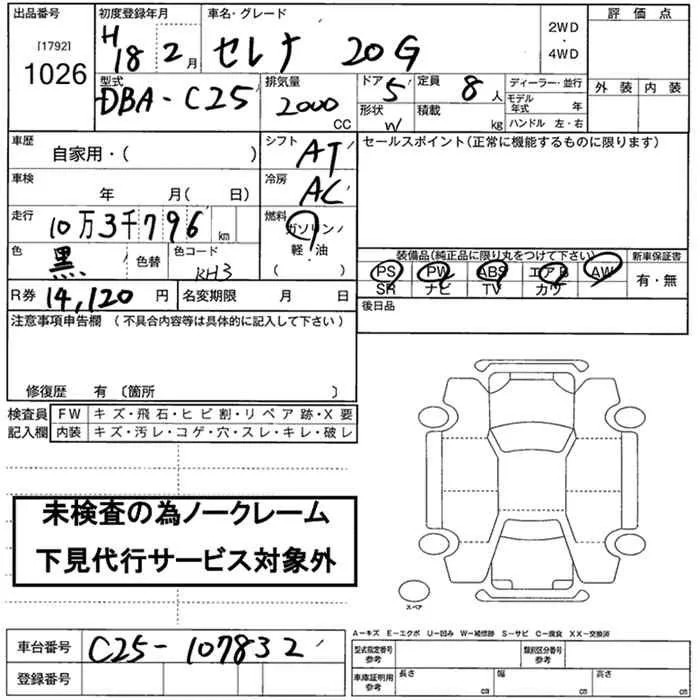 出品番号 初度登録年月 車名・グレード 評価点
[1792]
1026
H18 2月 セレナ 20G
2WD
・
4WD
型式 排気量 ドア 定員 ディーラー・並行 外装 内装
DBA-C25 2000 CC 5 8人
形状 W 積載 kg
モデル年式 年
ハンドル 左・右
車歴 自家用・( )
シフト AT
セールスポイント(正常に機能するものに限ります)
車検 年 月( 日)
冷房 AC
走行 10万3千796 km
燃料 ガソリン
軽・油
( )
色 黒 色替 色コード KH3
装備品(純正品に限り丸をつけて下さい) 新車保証書
PS PW ABS エアB AW
SR ナビ TV カワ
有・無
R券 14,120 円 名変期限 月 日
後日品
注意事項申告欄 (不具合内容等は具体的に記入して下さい)
修復歴 有 〔箇所 〕
検査員 FW キズ・飛石・ヒビ割・リペア跡・X要
記入欄 内装 キズ・汚レ・コゲ・穴・スレ・キレ・破レ
未検査の為ノークレーム
下見代行サービス対象外
スペア
A-キズ E-エクボ U-凹み W-補修跡 S-サビ C-腐食 XX-交換済
車台番号 C25-107832
型式指定番号 参考 類別区分番号 参考
登録番号
車庫証明用 参考 長さ cm 幅 cm 高さ cm